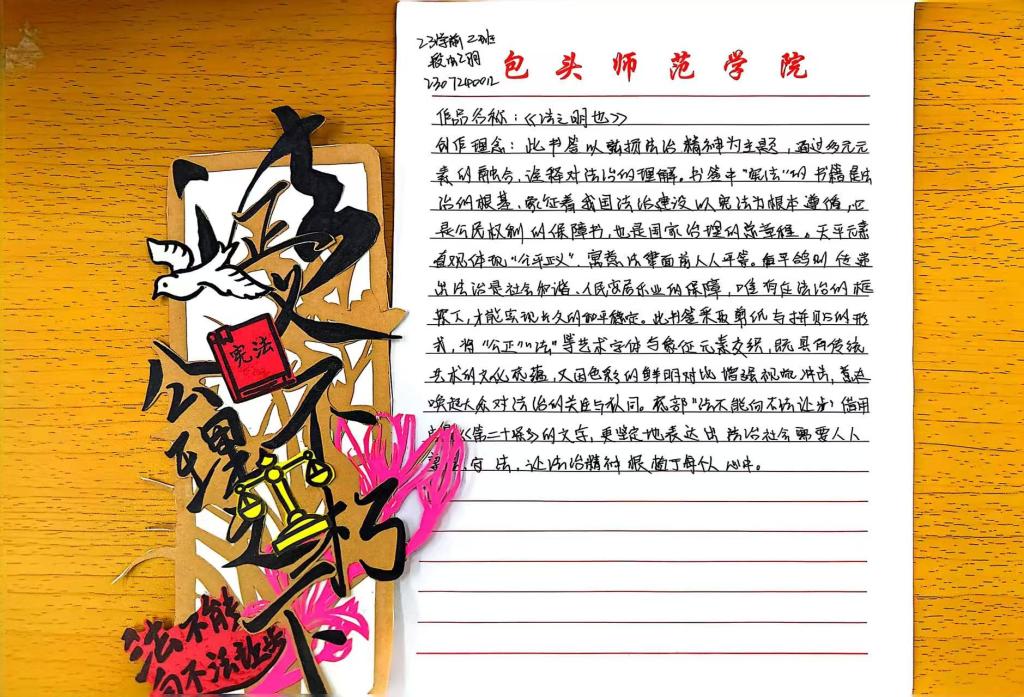 23学前23班
2307240012
包头师范学院
作品名称：《法之明也》
创作理念：此书签以弘扬法治精神为主题，通过多元元
素的融合，诠释对法治的理解。书签中“宪法”的书籍是法
治的根基，象征着我国法治建设以宪法为根本遵循，它
是公民权利的保障书，也是国家治理的总章程。天平元素
直观体现“公平正义”，寓意法律面前人人平等。和平鸽则传递
出法治是社会和谐、人民安居乐业的保障，唯有在法治的框
架下，才能实现长久的和平稳定。此书签采取剪纸与拼贴的形
式，将“公正”“法”等艺术字体与象征元素交织，既具有传统
艺术的文化底蕴，又因色彩的鲜明对比增强视觉冲击，意在
唤起大众对法治的关注与认同。底部“法不能向不法让步”借用
《第二十条》的文字，更坚定地表达出法治社会需要人人
守法，让法治精神根植于每个人心中。
正义不朽
公理
天下
宪法
法不能
向不法让步